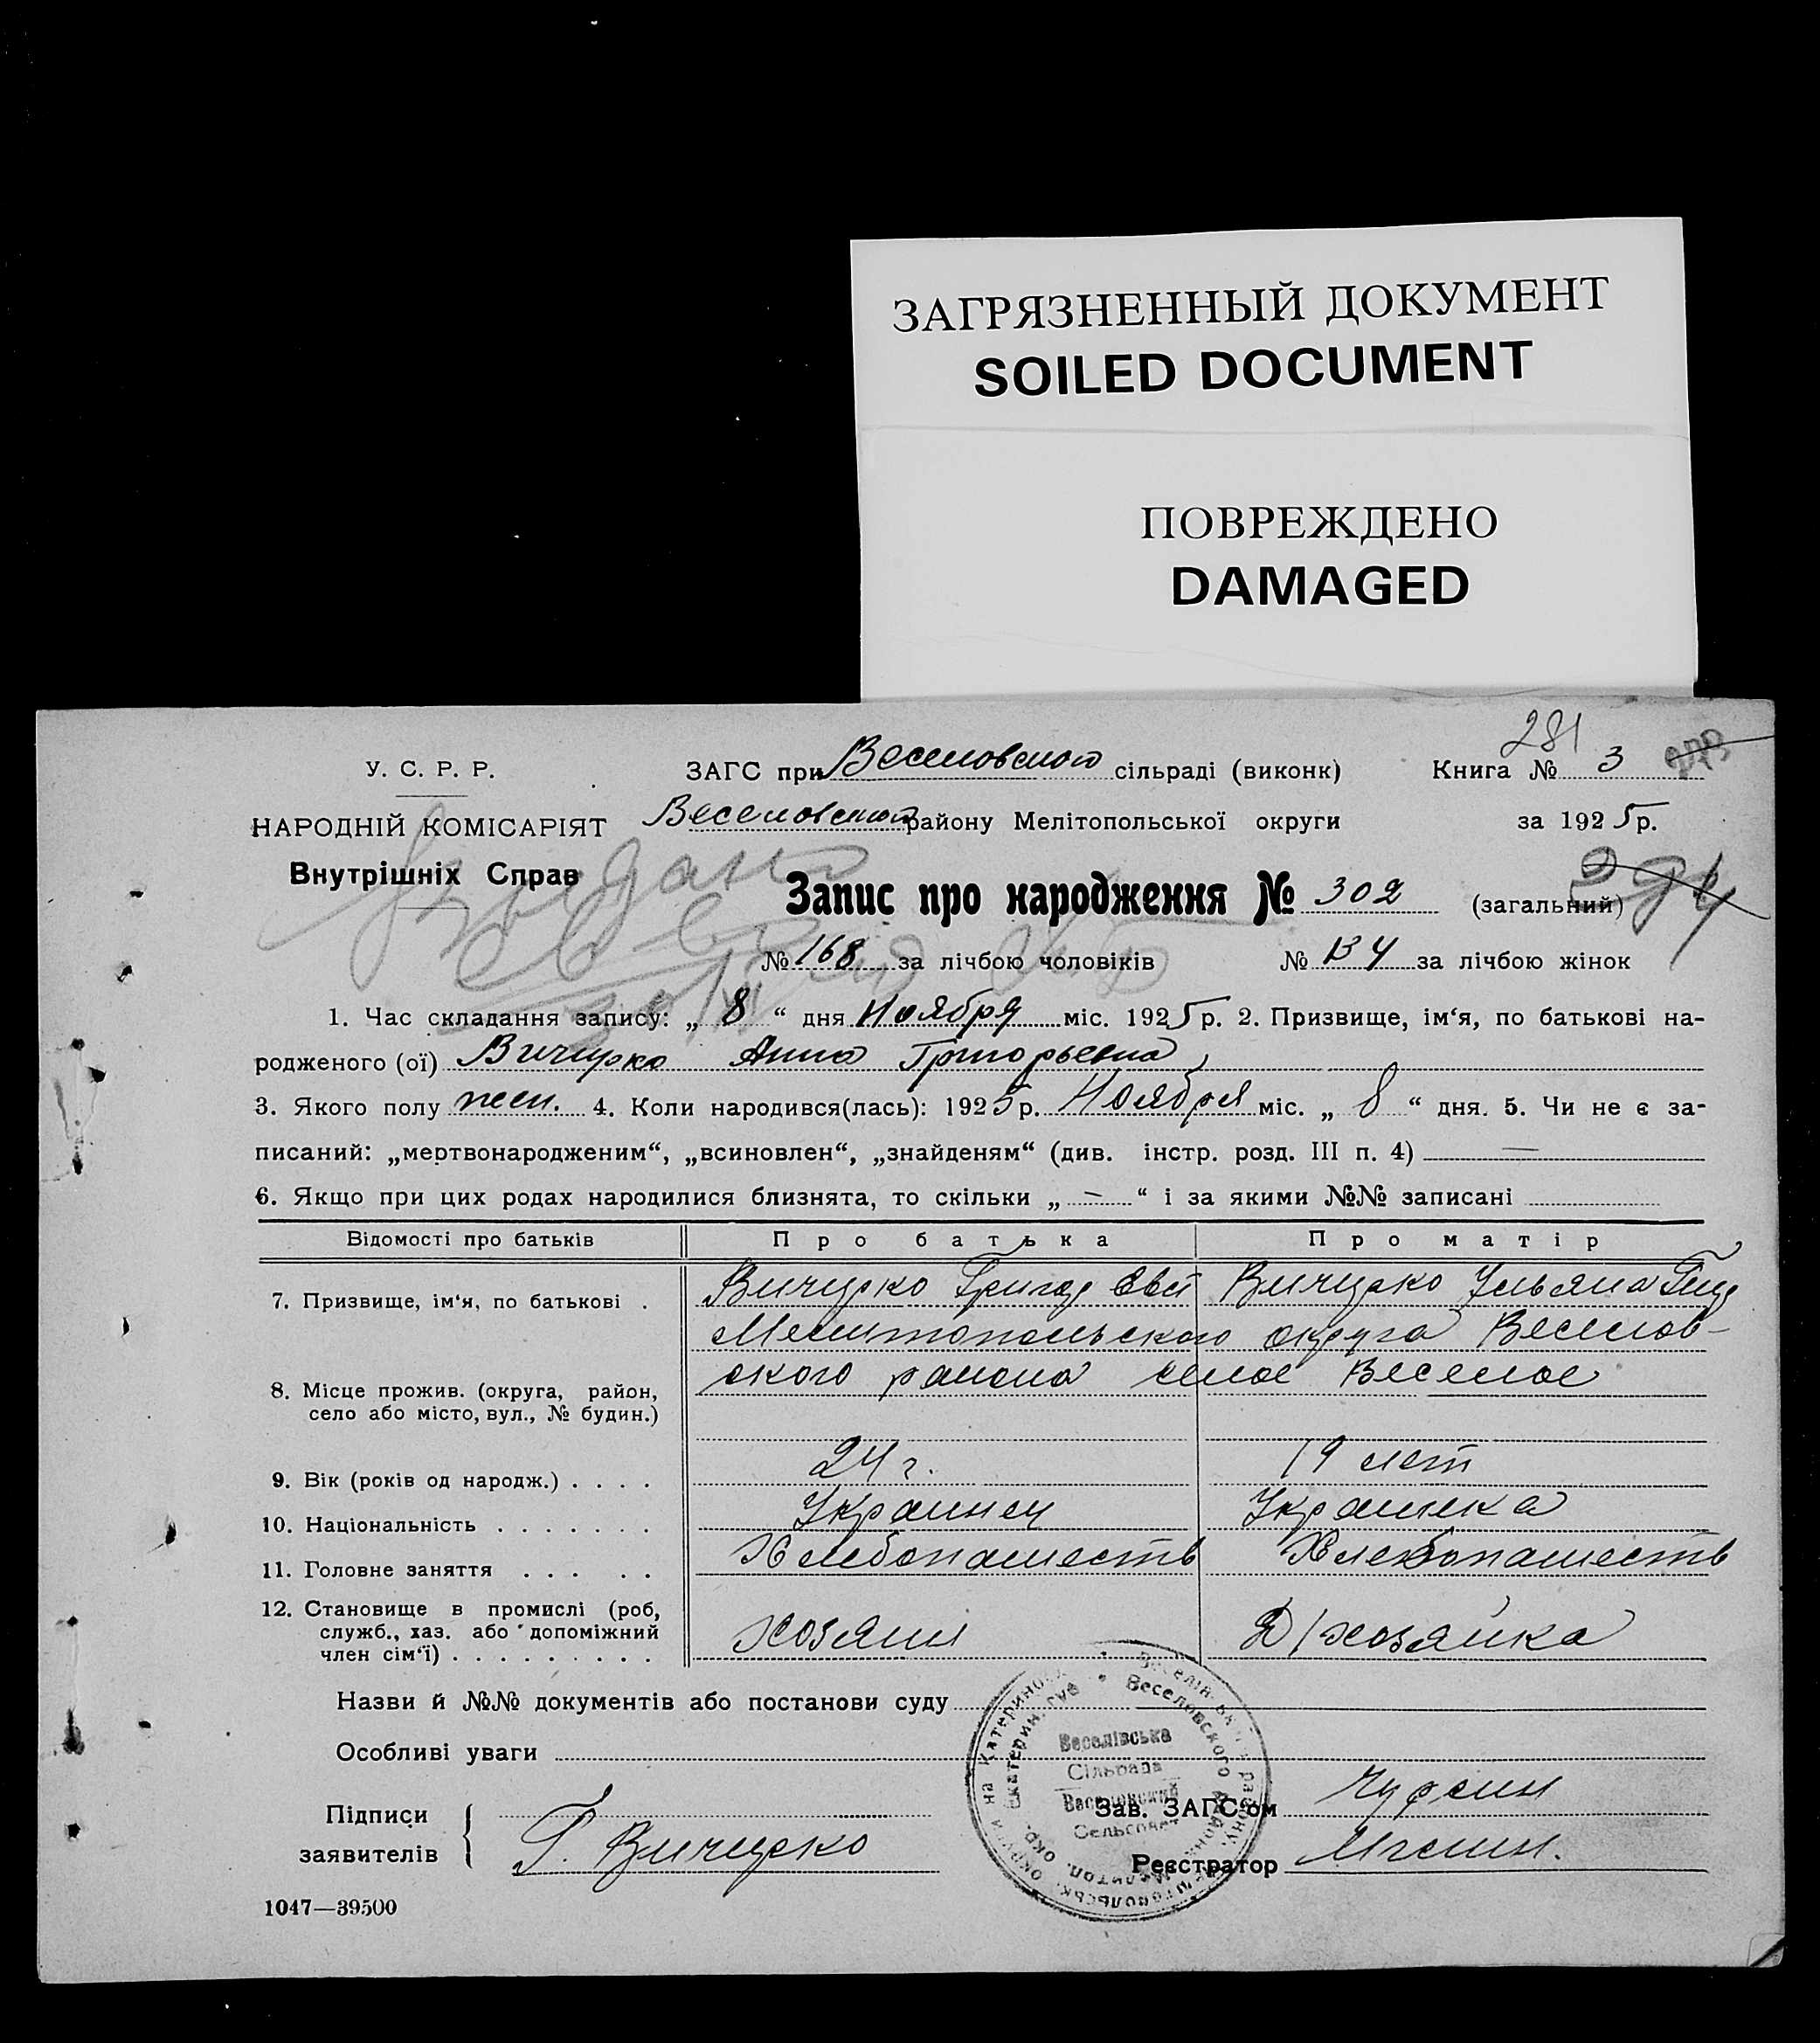 ЗАГРЯЗНЕННЫЙ ДОКУМЕНТ
SOILED DOCUMENT
ПОВРЕЖДЕНО
DAMAGED
281
У. С. Р. Р.
ЗАГС при Веселовском сільраді (виконк) Книга № 3
НАРОДНІЙ КОМІСАРІЯТ
Веселовского району Мелітопольської округи за 1925 р.
Внутрішніх Справ
Выдано
Запис про народження № 302 (загальний)
№ 168 за лічбою чоловіків № 134 за лічбою жінок
1. Час складання запису: „ 8 “ дня Ноября міс. 1925 р. 2. Призвище, ім‘я, по батькові на-
родженого (ої) Вичурко Анна Григорьевна
3. Якого полу жен. 4. Коли народився(лась): 1925 р. Ноября міс. „ 8 “ дня. 5. Чи не є за-
писаний: „мертвонародженим“, „всиновлен“, „знайденям“ (див. інстр. розд. III п. 4) —
6. Якщо при цих родах народилися близнята, то скільки „ — “ і за якими №№ записані
Відомості про батьків Про батька Про матір
7. Призвище, ім‘я, по батькові . Вичурко Григор Вичурко Ульяна
Мелитопольского округа Веселов-
ского района село Веселое
8. Місце прожив. (округа, район,
село або місто, вул., № будин.)
9. Вік (років од народж.) . . . . 24 г. 19 лет
10. Національність . . . . . . . Украинец Украинка
11. Головне заняття . . . . . Хлебопашеств Хлебопашеств
12. Становище в промислі (роб,
служб., хаз. або допоміжний
член сім‘ї) . . . . . . . . . Хозяин Д/хозяйка
Назви й №№ документів або постанови суду
Особливі уваги
Веселівська
Сільрада
Веселовский
Сельсовет
Підписи
заявителів Г. Вичурко
Зав. ЗАГС‘ом
Реєстратор
1047—39500